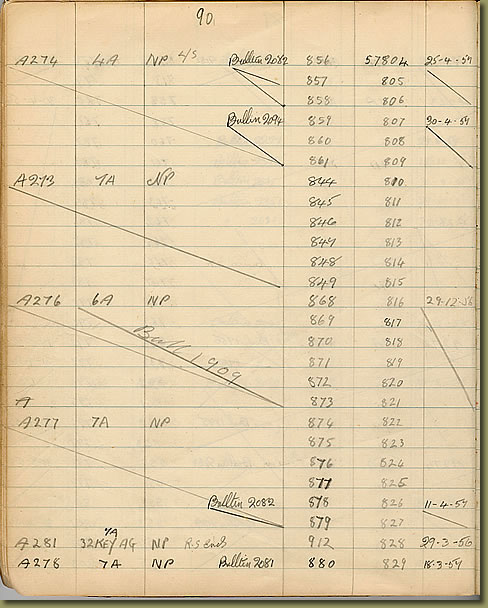 90.
A274 4A NP 4/S Bulltin 2082 856 57804 25-4-57
857 805
858 806
Bulltin 2094 859 807 30-4-57
860 808
861 809
A273 7A NP 844 810
845 811
846 812
847 813
848 814
849 815
A276 6A NP 868 816 29-12-56
869 817
Bull 1909 870 818
871 819
872 820
A 873 821
A277 7A NP 874 822
875 823
876 824
877 825
Bulltin 2082 878 826 11-4-57
879 827
A281 32KEY AG NP R.S Ends 912 828 29-3-56
A278 7A NP Bulltin 2081 880 829 18-3-57